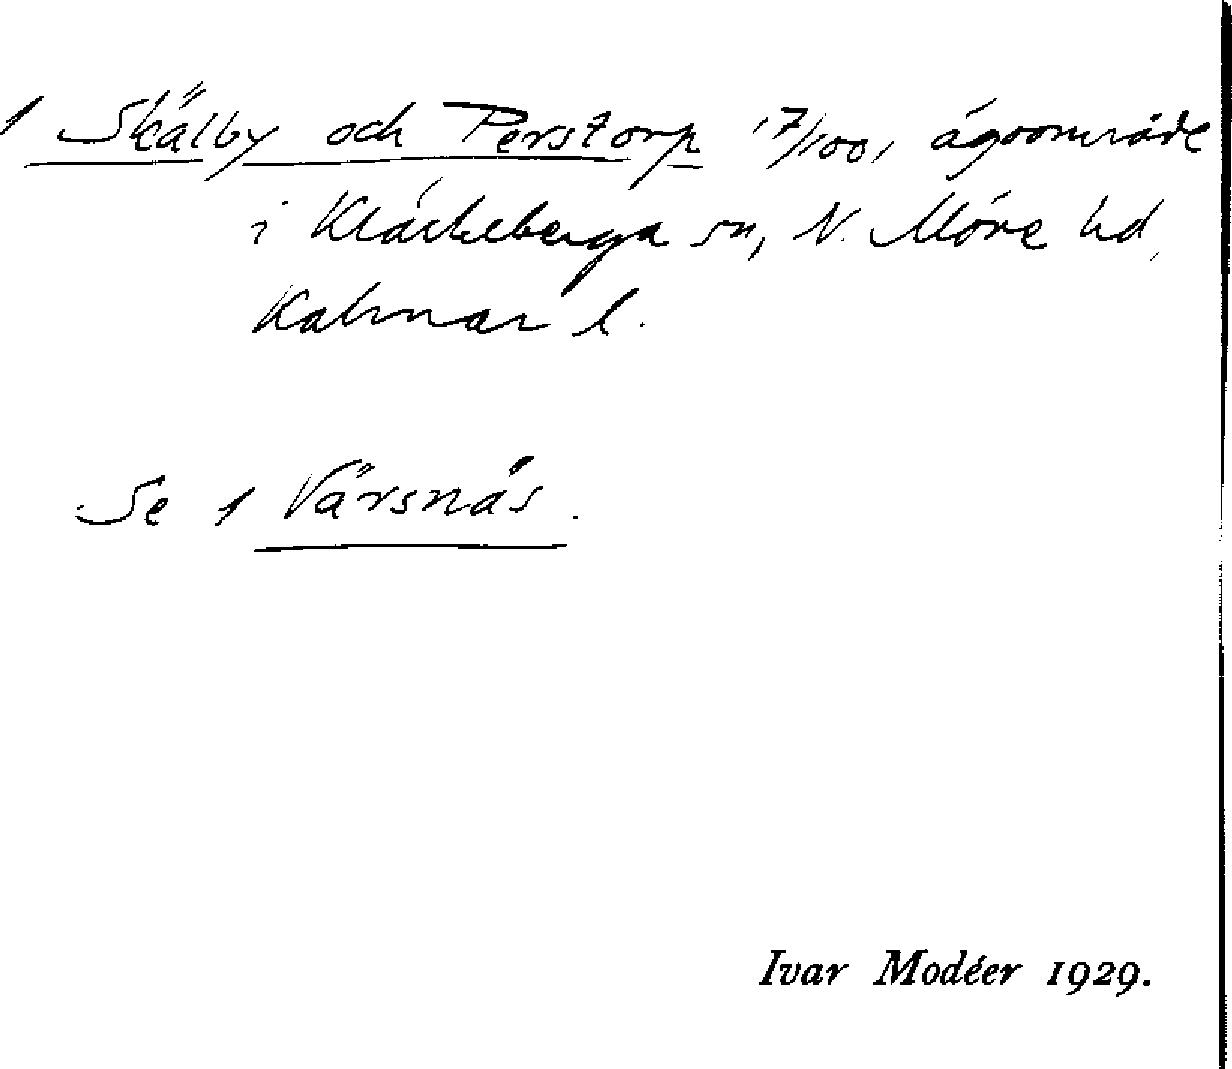 1 Skälby och Perstorp 17/100, ägoområde
i Kläckeberga sn, N. Möre hd,
Kalmar l.
Se 1 Värsnäs.
Ivar Modéer 1929.